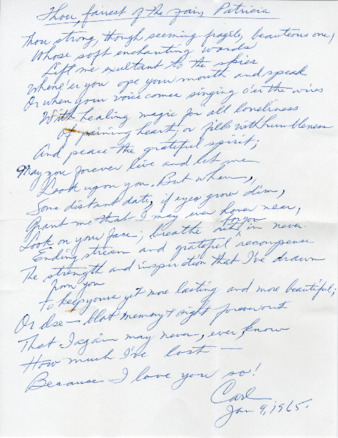 Thou, fairest of the fair, Patricia
Thou strong, though seeming fragile, beauteous one,
Whose soft enchanting words
Lift me exultant to the skies
Whene'er you ope your mouth and speak
Or when your voice comes singing o'er the wires
With healing magic for all loneliness
Of pining hearts, or fills with humbleness
And peace the grateful spirit;
May you forever live and let me
Look upon you. But when,
Some distant date, if eyes grow dim,
Grant me that I may ever hover near,
Look on your face, breathe out for you in never
Ending stream and grateful recompense
The strength and inspiration that I've drawn
from you
To keep you yet more lasting and more beautiful;
Or else — blot memory + sight
That I again may never, ever, know
How much I've lost —
Because I love you so!
Carl
Jan 9, 1965.